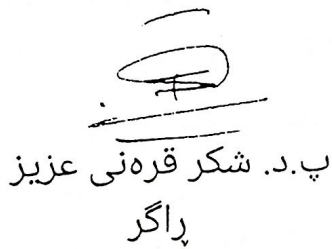 پ.د. شکر قرەنی عزیز
ڕاگر